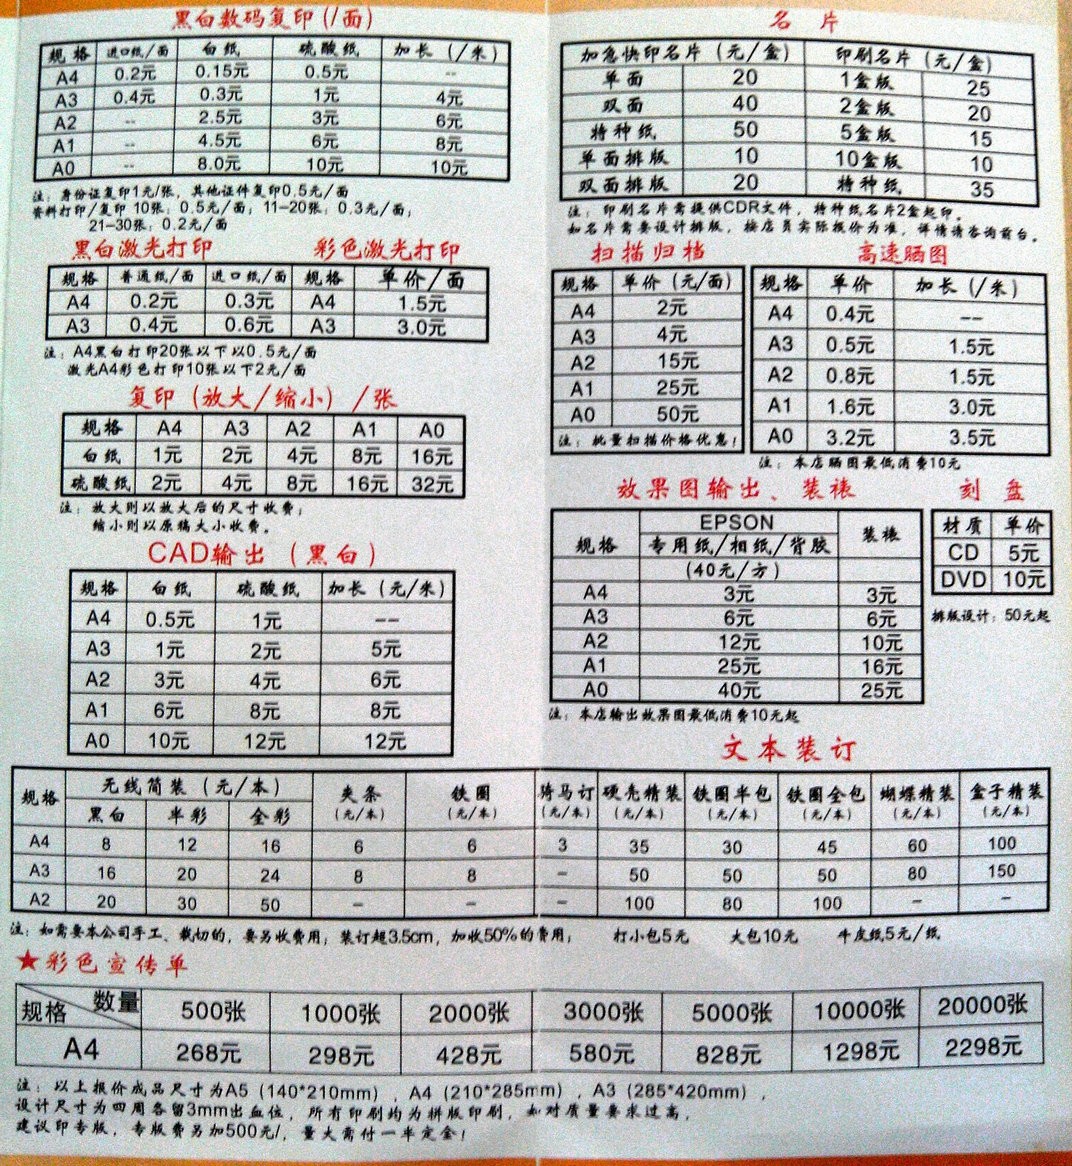 黑白数码复印(/面)
规格 进口纸/面 白纸 硫酸纸 加长(/米)
A4 0.2元 0.15元 0.5元 --
A3 0.4元 0.3元 1元 4元
A2 -- 2.5元 3元 6元
A1 -- 4.5元 6元 8元
A0 -- 8.0元 10元 10元
注：身份证复印1元/张，其他证件复印0.5元/面
资料打印/复印 10张：0.5元/面；11-20张：0.3元/面；
21-30张：0.2元/面
黑白激光打印 彩色激光打印
规格 普通纸/面 进口纸/面 规格 单价/面
A4 0.2元 0.3元 A4 1.5元
A3 0.4元 0.6元 A3 3.0元
注：A4黑白打印20张以下以0.5元/面
激光A4彩色打印10张以下2元/面
复印(放大/缩小)/张
规格 A4 A3 A2 A1 A0
白纸 1元 2元 4元 8元 16元
硫酸纸 2元 4元 8元 16元 32元
注：放大则以放大后的尺寸收费；
缩小则以原稿大小收费。
CAD输出(黑白)
规格 白纸 硫酸纸 加长(元/米)
A4 0.5元 1元 --
A3 1元 2元 5元
A2 3元 4元 6元
A1 6元 8元 8元
A0 10元 12元 12元
名片
加急快印名片(元/盒) 印刷名片(元/盒)
单面 20 1盒版 25
双面 40 2盒版 20
特种纸 50 5盒版 15
单面排版 10 10盒版 10
双面排版 20 特种纸 35
注：印刷名片需提供CDR文件，特种纸名片2盒起印。
如名片需要设计排版，按店员实际报价为准，详情请咨询前台。
扫描归档
规格 单价(元/面)
A4 2元
A3 4元
A2 15元
A1 25元
A0 50元
注：批量扫描价格优惠！
高速晒图
规格 单价 加长(/米)
A4 0.4元 --
A3 0.5元 1.5元
A2 0.8元 1.5元
A1 1.6元 3.0元
A0 3.2元 3.5元
注：本店晒图最低消费10元
效果图输出、装裱
规格 EPSON 装裱
专用纸/相纸/背胶
(40元/方)
A4 3元 3元
A3 6元 6元
A2 12元 10元
A1 25元 16元
A0 40元 25元
注：本店输出效果图最低消费10元起
刻盘
材质 单价
CD 5元
DVD 10元
排版设计：50元起
文本装订
规格 无线简装(元/本) 夹条(元/本) 铁圈(元/本) 骑马订(元/本) 硬壳精装(元/本) 铁圈半包(元/本) 铁圈全包(元/本) 蝴蝶精装(元/本) 盒子精装(元/本)
黑白 半彩 全彩
A4 8 12 16 6 6 3 35 30 45 60 100
A3 16 20 24 8 8 - 50 50 50 80 150
A2 20 30 50 - - - 100 80 100 - -
注：如需要本公司手工、裁切的，要另收费用；装订超3.5cm，加收50%的费用； 打小包5元 大包10元 牛皮纸5元/纸
★彩色宣传单
规格 数量 500张 1000张 2000张 3000张 5000张 10000张 20000张
A4 268元 298元 428元 580元 828元 1298元 2298元
注：以上报价成品尺寸为A5（140*210mm），A4（210*285mm），A3（285*420mm），
设计尺寸为四周各留3mm出血位，所有印刷均为拼版印刷，如对质量要求过高，
建议印专版，专版费另加500元/，量大需付一半定金！